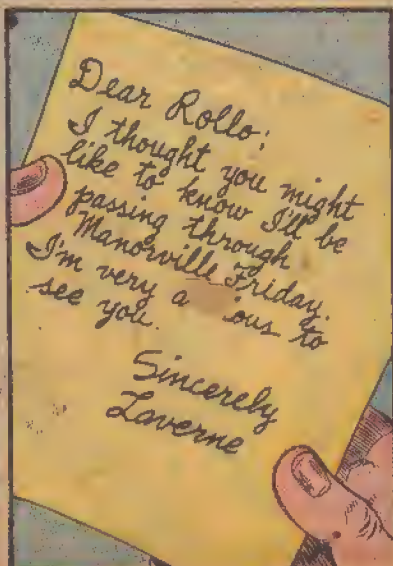 Dear Rollo;
I thought you might
like to know I'll be
passing through
Manorville Friday.
I'm very to
see you.
Sincerely
Laverne